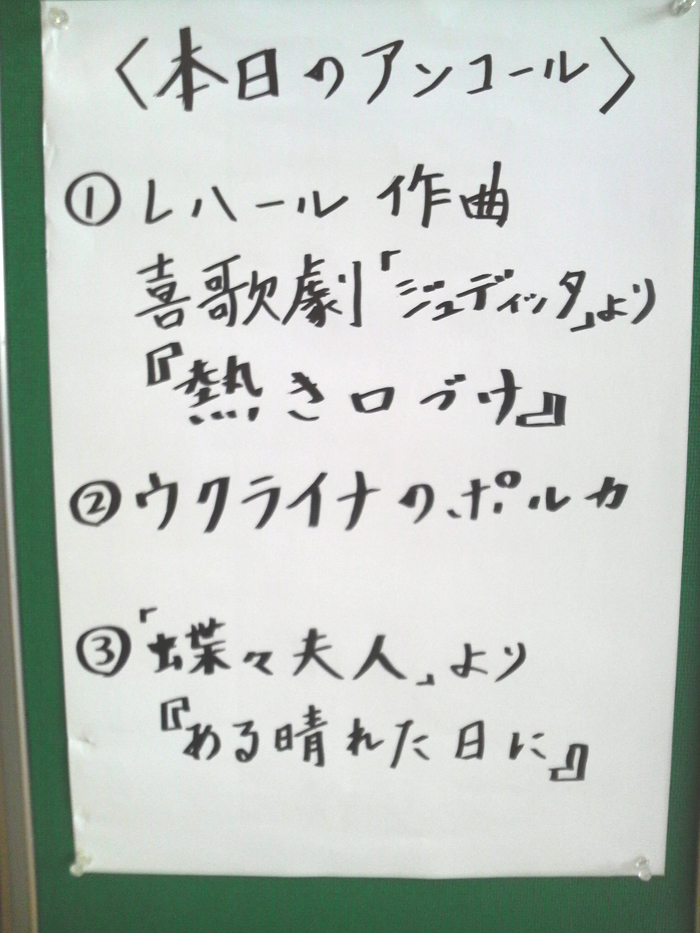 〈本日のアンコール〉
①レハール 作曲
喜歌劇「ジュディッタ」より
『熱き口づけ』
②ウクライナのポルカ
③「蝶々夫人」より
『ある晴れた日に』